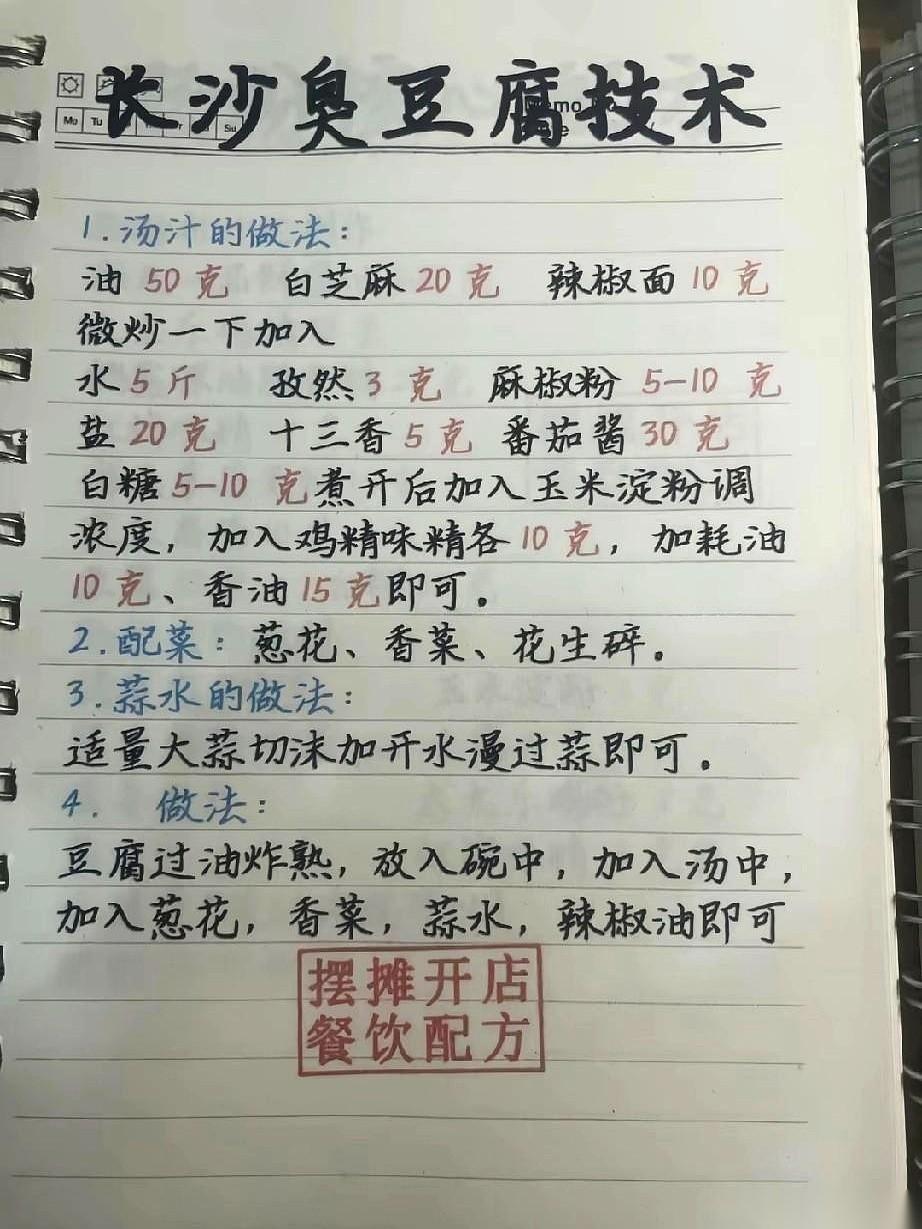 长沙臭豆腐技术
Mo Tu Su
1.汤汁的做法:
油 50 克 白芝麻 20 克 辣椒面 10 克
微炒一下加入
水 5 斤 孜然 3 克 麻椒粉 5-10 克
盐 20 克 十三香 5 克 番茄酱 30 克
白糖 5-10 克煮开后加入玉米淀粉调
浓度，加入鸡精味精各 10 克，加耗油
10 克、香油 15 克即可。
2.配菜: 葱花、香菜、花生碎。
3.蒜水的做法:
适量大蒜切沫加开水漫过蒜即可。
4. 做法:
豆腐过油炸熟，放入碗中，加入汤中，
加入葱花，香菜，蒜水，辣椒油即可
摆摊开店
餐饮配方